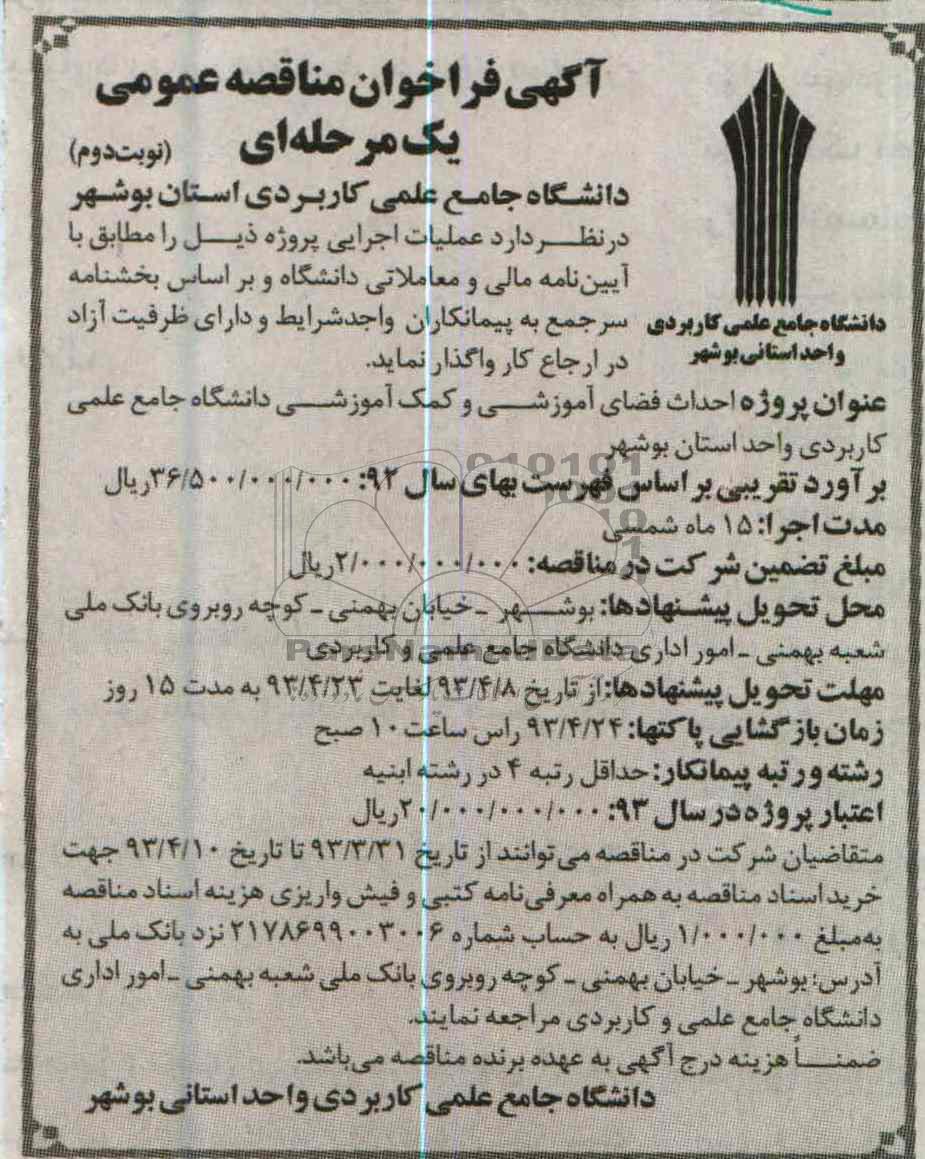 آگهی فراخوان مناقصه عمومی
یک مرحله‌ای (نوبت دوم)
دانشگاه جامع علمی کاربردی استان بوشهر
درنظر دارد عملیات اجرایی پروژه ذیل را مطابق با
آیین‌نامه مالی و معاملاتی دانشگاه و بر اساس بخشنامه
سرجمع به پیمانکاران واجدشرایط و دارای ظرفیت آزاد
در ارجاع کار واگذار نماید.
دانشگاه جامع علمی کاربردی
واحد استانی بوشهر
عنوان پروژه احداث فضای آموزشی و کمک آموزشی دانشگاه جامع علمی
کاربردی واحد استان بوشهر
برآورد تقریبی بر اساس فهرست بهای سال ۹۲: ۳۶/۵۰۰/۰۰۰/۰۰۰ریال
مدت اجرا: ۱۵ ماه شمسی
مبلغ تضمین شرکت در مناقصه: ۲/۰۰۰/۰۰۰/۰۰۰ریال
محل تحویل پیشنهادها: بوشهر ـ خیابان بهمنی ـ کوچه روبروی بانک ملی
شعبه بهمنی ـ امور اداری دانشگاه جامع علمی و کاربردی
مهلت تحویل پیشنهادها: از تاریخ ۹۳/۴/۸ لغایت ۹۳/۴/۲۳ به مدت ۱۵ روز
زمان بازگشایی پاکتها: ۹۳/۴/۲۴ راس ساعت ۱۰ صبح
رشته و رتبه پیمانکار: حداقل رتبه ۴ در رشته ابنیه
اعتبار پروژه در سال ۹۳: ۲۰/۰۰۰/۰۰۰/۰۰۰ریال
متقاضیان شرکت در مناقصه می‌توانند از تاریخ ۹۳/۳/۳۱ تا تاریخ ۹۳/۴/۱۰ جهت
خرید اسناد مناقصه به همراه معرفی‌نامه کتبی و فیش واریزی هزینه اسناد مناقصه
به‌مبلغ ۱/۰۰۰/۰۰۰ ریال به حساب شماره ۲۱۷۸۶۹۹۰۰۳۰۰۶ نزد بانک ملی به
آدرس: بوشهر ـ خیابان بهمنی ـ کوچه روبروی بانک ملی شعبه بهمنی ـ امور اداری
دانشگاه جامع علمی و کاربردی مراجعه نمایند.
ضمناً هزینه درج آگهی به عهده برنده مناقصه می‌باشد.
دانشگاه جامع علمی کاربردی واحد استانی بوشهر
ParsNamadData